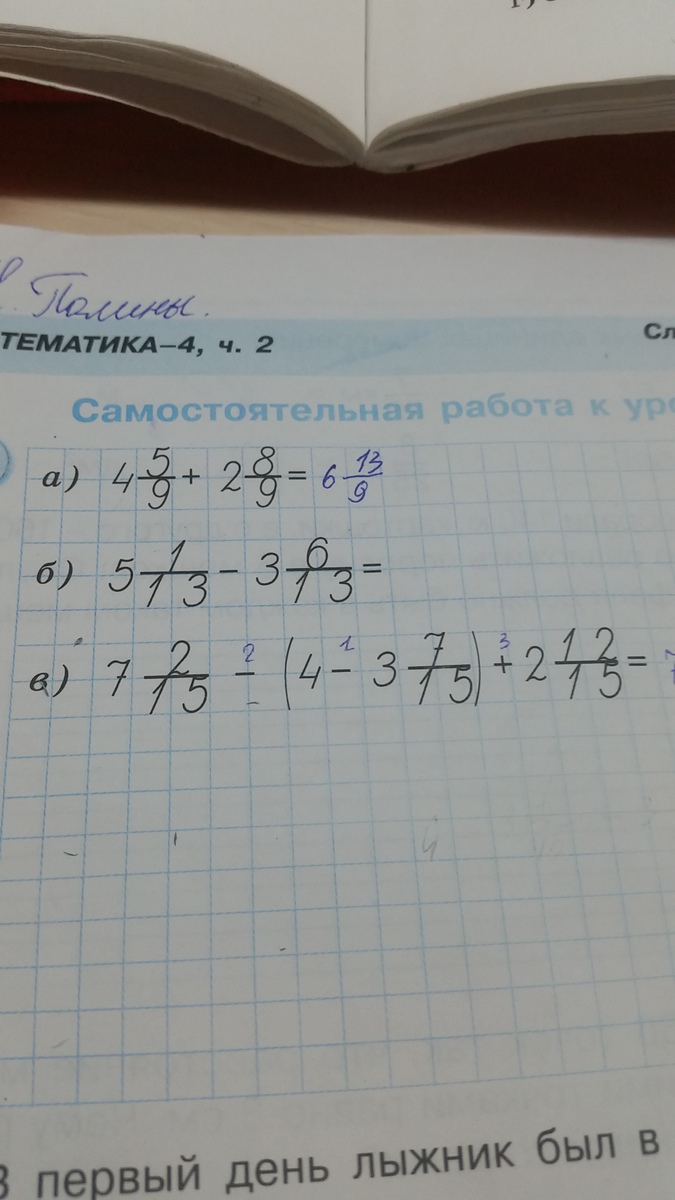 Полины.
ТЕМАТИКА–4, ч. 2
Сл
Самостоятельная работа к уро
а) 4 5/9 + 2 8/9 = 6 13/9
б) 5 1/13 – 3 6/13 =
в) 7 2/15 – (4 – 3 7/15) + 2 12/15 = 7
2 1 3
4
В первый день лыжник был в